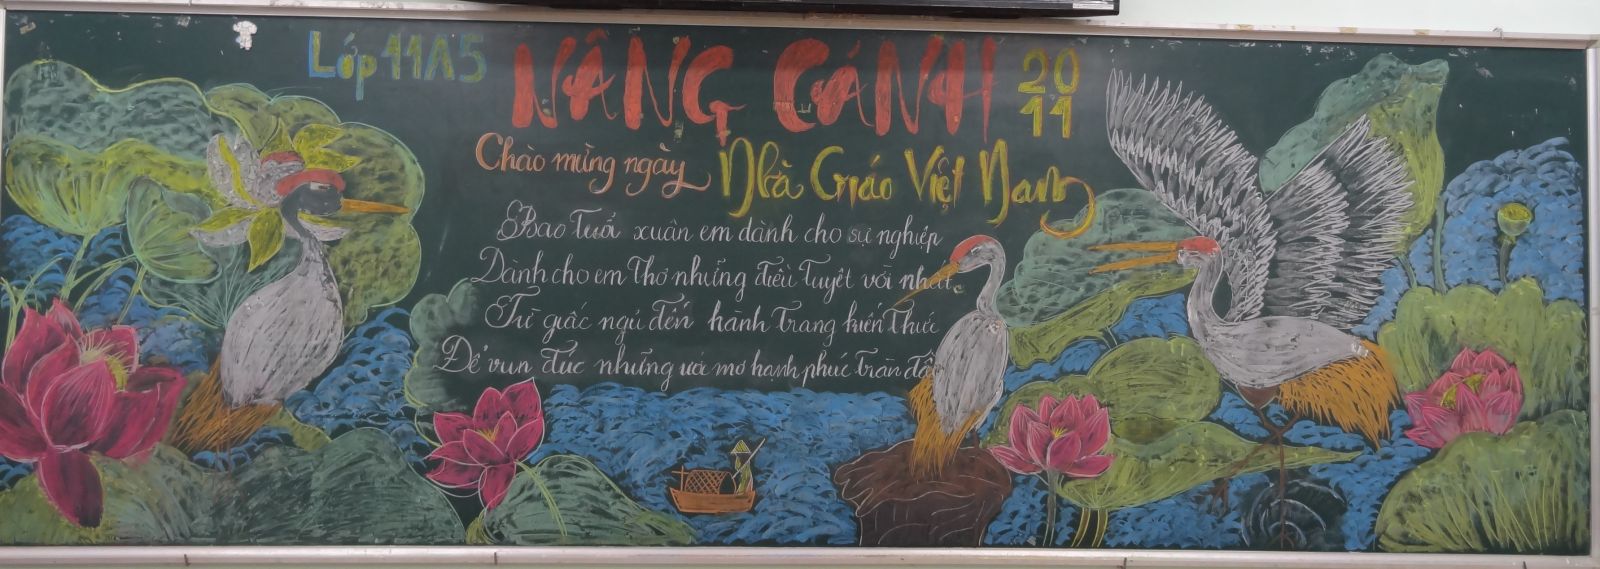 Lớp 11A5
NÂNG CÁNH
20
11
Chào mừng ngày Nhà Giáo Việt Nam
Bao tuổi xuân em dành cho sự nghiệp
Dành cho em thơ những điều tuyệt vời nhất
Từ giấc ngủ đến hành trang kiến thức
Để vun đúc những ước mơ hạnh phúc tràn đầy